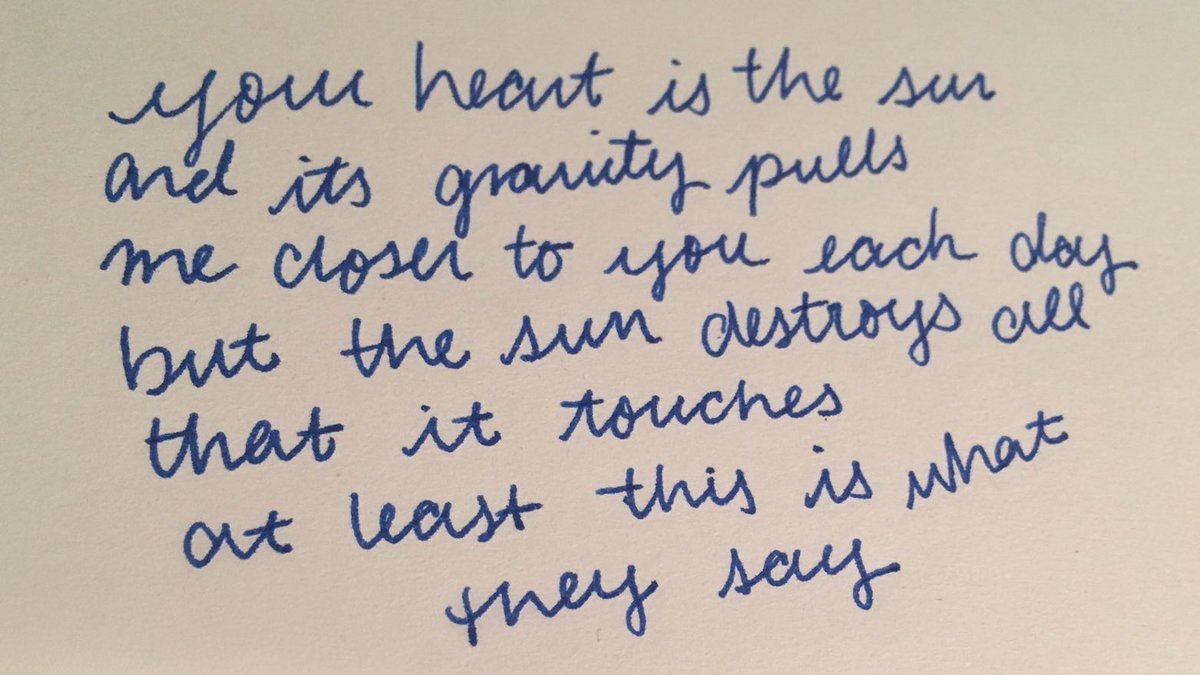 your heart is the sun
and its gravity pulls
me closer to you each day
but the sun destroys all
that it touches
at least this is what
they say